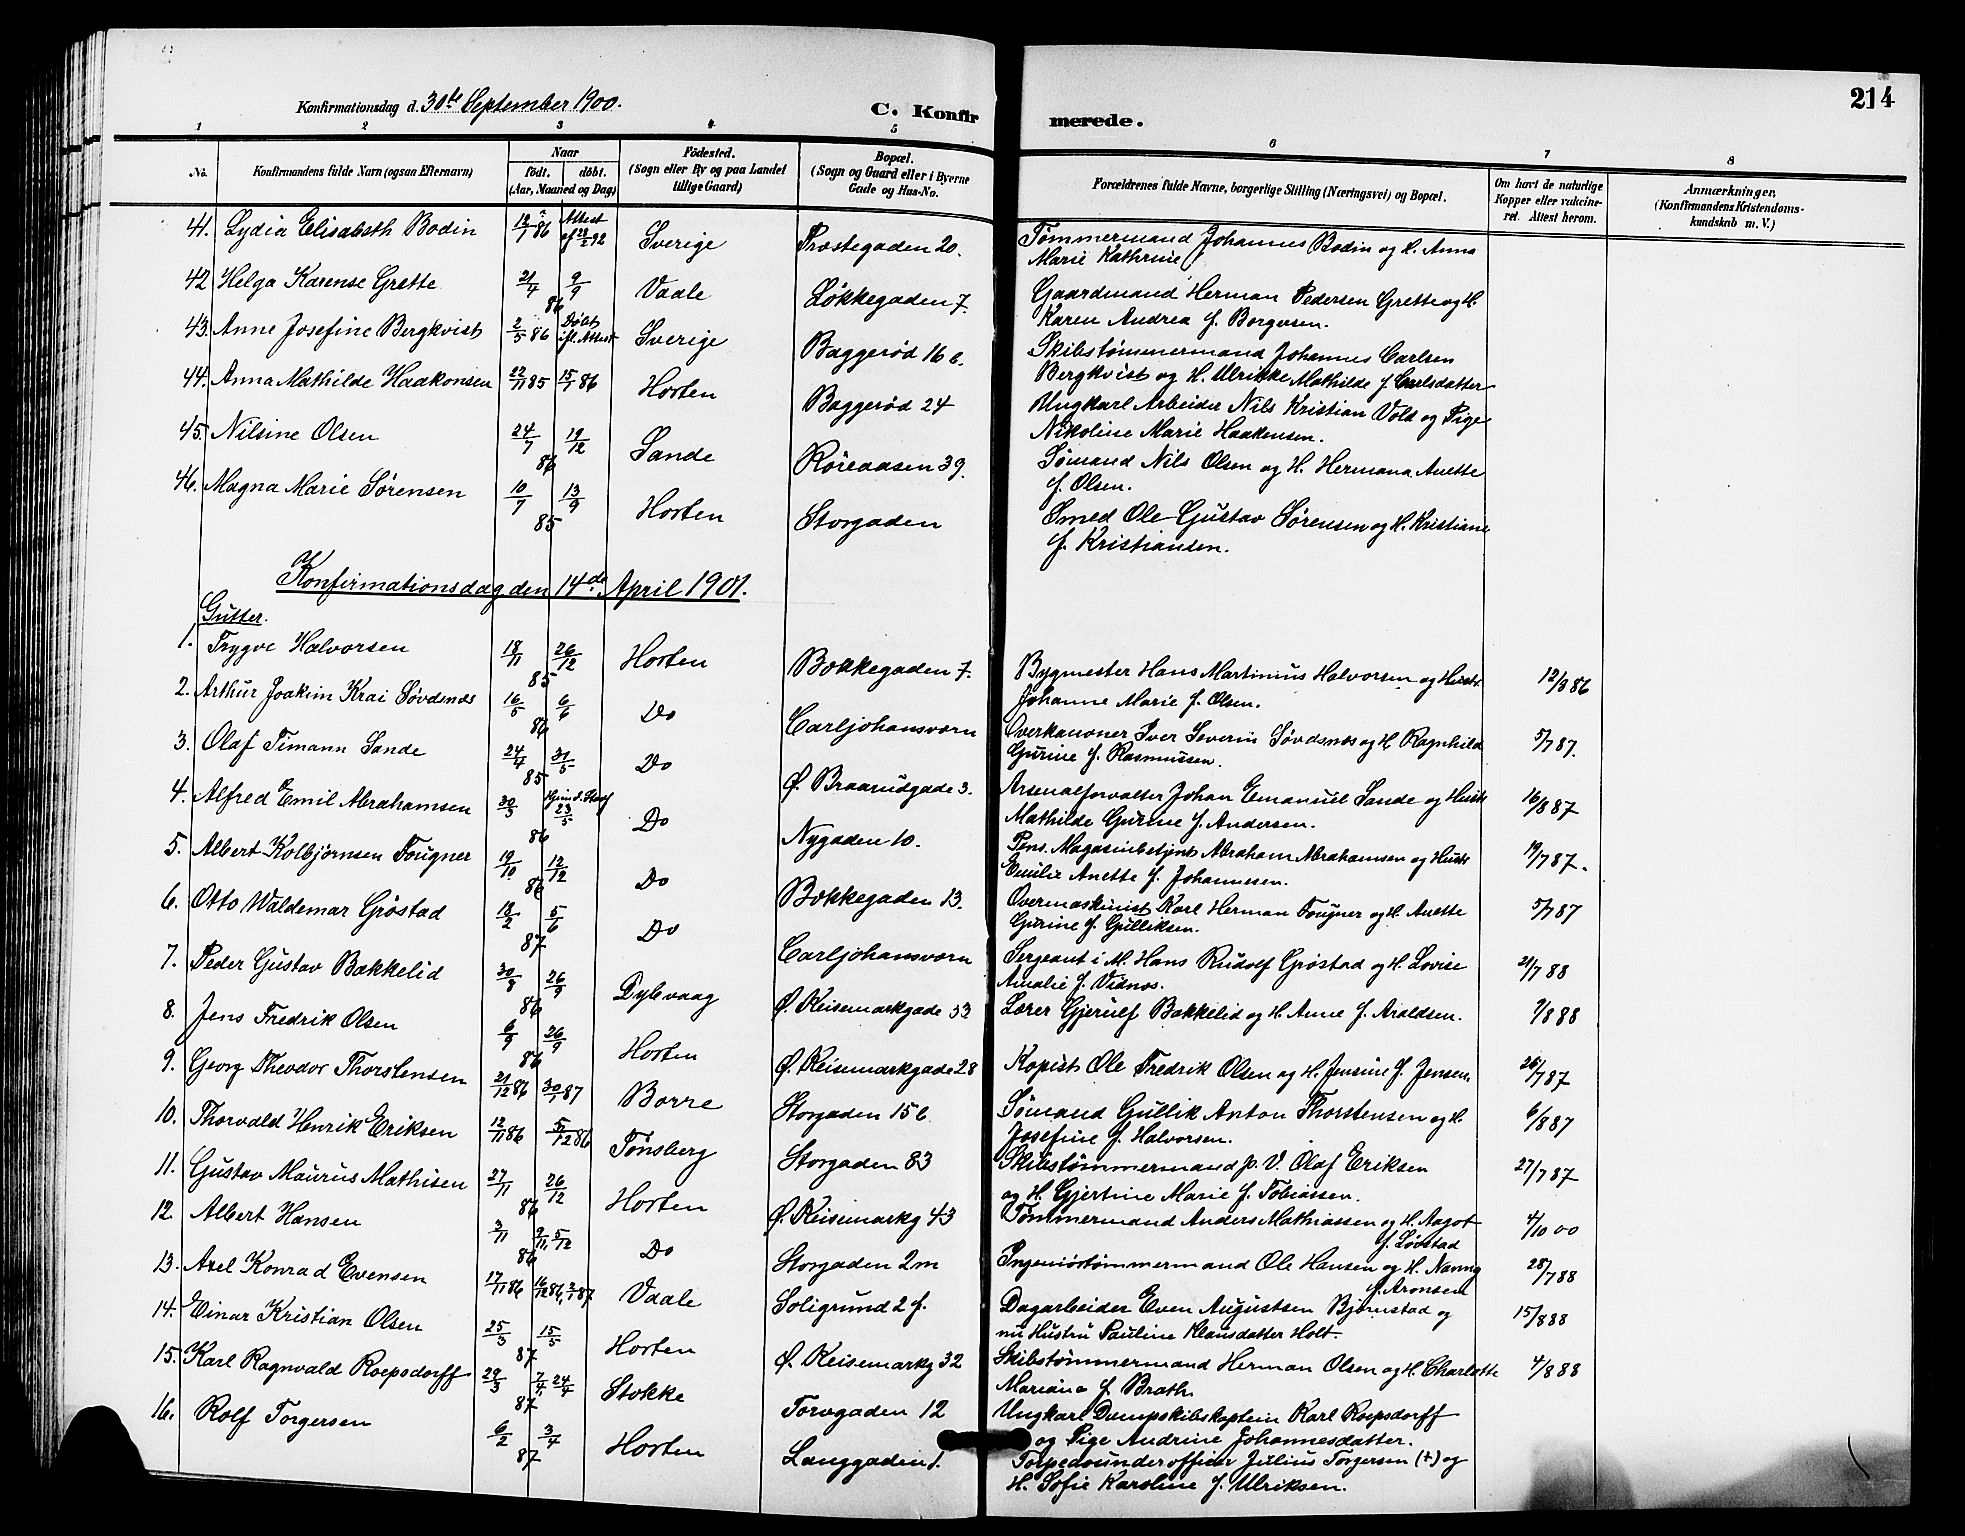 214
Konfirmationsdag d. 30te September 1900.
C. Konfirmerede.
1 2 3 4 5 6 7 8
No.
Konfirmandens fulde Navn (ogsaa Efternavn)
Naar
født. døbt.
(Aar, Maaned og Dag)
Födested.
(Sogn eller By og paa Landet
tillige Gaard)
Bopæl.
(Sogn og Gaard eller i Byerne
Gade og Hus-No.
Forældrenes fulde Navne, borgerlige Stilling (Næringsvei) og Bopæl.
Om havt de naturlige
Kopper eller vakcine-
ret. Attest herom.
Anmærkninger,
(Konfirmandens Kristendoms-
kundskab m. V.)
41. Lydia Elisabeth Bodin 12/7 86 Attest af 29/2 92 Sverige Præstegaden 20. Tømmermand Johannes Bodin og H. Anna
Marie Kathrine
42 Helga Karense Grette 21/4 9/9 86 Vaale Løkkegaden 7. Gaardmand Herman Pedersen Grette og H.
Karen Andrea f. Borgersen.
43. Anne Josefine Bergkvist 2/5 86 Døbt ifl. Attest Sverige Baggerød 16 b. Skibstømmermand Johannes Carlsen
Bergkvist og H. Ulrikke Mathilde f. Carlsdatter
44. Anna Mathilde Haakonsen 22/11 85 15/1 86 Horten Baggerød 24 Ungkarl Arbeider Nils Kristian Vold og Pige
Nikoline Marie Haakensen.
45. Nilsine Olsen 24/7 19/12 86 Sande Røreaasen 39. Sømand Nils Olsen og H. Hermana Anette
f. Olsen.
46. Magna Marie Sørensen 10/7 13/9 85 Horten Storgaden Smed Ole Gustav Sørensen og H. Kristiane
f. Kristiansen.
Konfirmationsdag den 14de April 1901.
Gutter.
1. Trygve Halvorsen 18/11 26/12 85 Horten Bokkegaden 7. Bygmester Hans Martinius Halvorsen og Hustr 12/3 86
Johanne Marie f. Olsen.
2. Arthur Joakim Krai Søvdsnæs 16/5 6/6 86 Do Carljohansvorn Overkanoner Iver Severin Søvdsnæs og H Ragnhild 5/7 87.
Gurine f. Rasmussen.
3. Olaf Timann Sande 24/4 31/5 85 Do Ø. Braarudgade 3. Arsenalforvalter Johan Emanuel Sande og Hustr 16/8 87
Mathilde Gurine f. Andersen.
4. Alfred Emil Abrahamsen 30/3 Hjemd. Stadf 23/5 86 Do Nygaden 10. Pens. Magasinbetjent Abraham Abrahamsen og Hustr 19/7 87.
Emilie Anette f. Johannesen.
5. Albert Kolbjørnsen Fougner 19/10 12/12 86 Do Bokkegaden 13. Overmaskinist Karl Herman Fougner og H. Anette 5/7 87
Gurine f. Gulliksen.
6. Otto Waldemar Grøstad 18/2 5/6 87 Do Carljohansvorn Sergeant i M. Hans Rudolf Grøstad og H. Lovise 21/7 88
Amalie f. Vidnes.
7. Peder Gustav Bakkelid 30/8 26/9 86 Dybvaag Ø. Keisemarkgade 33 Lærer Gjerulf Bakkelid og H. Anne f. Araldsen. 7/8 88
8. Jens Fredrik Olsen 6/9 26/9 86 Horten Ø. Keisemarkgade 28 Kopist Ole Fredrik Olsen og H. Jensine f. Jensen. 26/7 87
9. Georg Theodor Thorstensen 21/12 86 30/1 87 Borre Storgaden 15 b Sømand Gullik Anton Thorstensen og H. 6/8 87
Josefine f. Halvorsen.
10. Thorvald Henrik Eriksen 12/11 86 5/12 86 Tønsberg Storgaden 83 Skibstømmermand p. V. Olaf Eriksen 27/7 87
og H. Gjertine Marie f. Tobiassen.
11. Gustav Maurus Mathisen 27/11 26/12 86 Horten Ø. Keisemarkg 43 Tømmermand Anders Mathiassen og H. Aagot 4/10 00
f. Løvstad
12. Albert Hansen 3/11 9/11, 5/12 86 Do Storgaden 2 m Ingeniørtømmermand Ole Hansen og H. Nanny 28/7 88
f. Aronsen
13. Axel Konrad Evensen 17/11 86 16/12 86, 2/1 87 Vaale Soligrund 2 f. Dagarbeider Even Augustsen Bjørnstad og 15/8 88
nu Hustru Pauline Klausdatter Holt.
14. Einar Kristian Olsen 25/3 15/5 87 Horten Ø. Keisemarkg 32 Skibstømmermand Herman Olsen og H. Charlotte 4/8 88
Mariane f. Brath.
15. Karl Ragnvald Roepsdorff 29/3 7/4, 24/4 87 Stokke Torvgaden 12 Ungkarl Dampskibskaptein Karl Roepsdorff
og Pige Andrine Johannesdatter.
16. Rolf Torgersen 6/2 3/4 87 Horten Langgaden 1. Torpedounderofficer Julius Torgersen (+) og
H. Sofie Karoline f. Ulriksen.